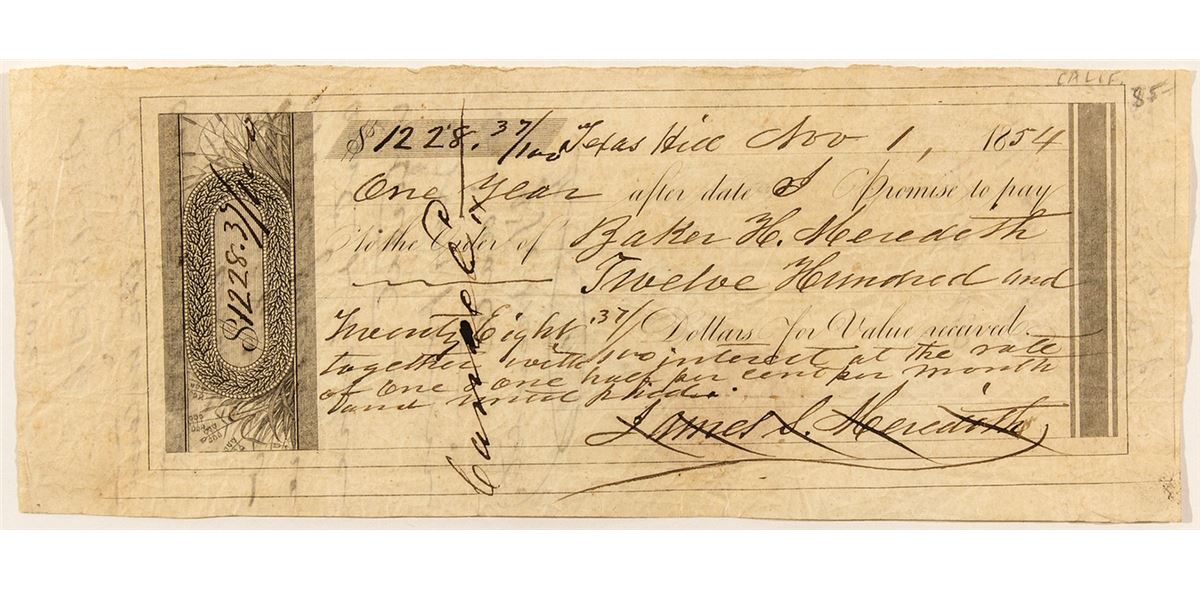 CALIF.
85-
$1228.37/100
$1228.37/100 Texas Hill Nov 1, 1854
One Year after date I Promise to pay
to the Order of Baker H. Meredith
Twelve Hundred and
Twenty Eight .37/100 Dollars for Value received
together with interest at the rate
of One & One half per cent per month
until paid.
James S. Meredith
Canceled